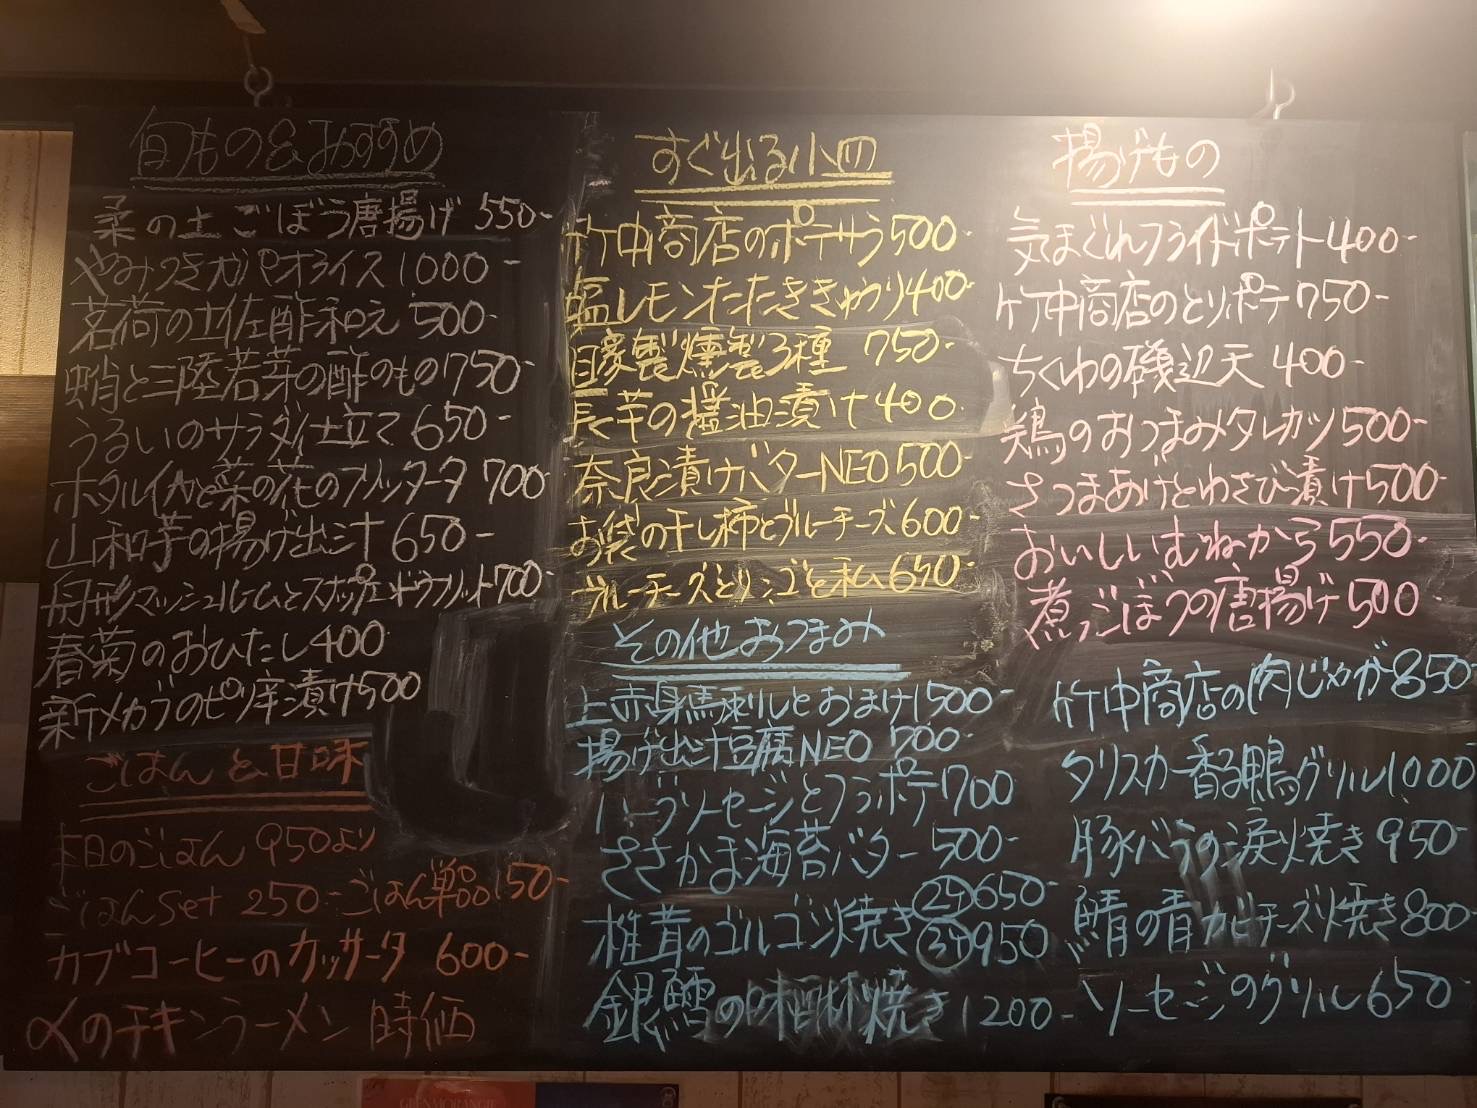 旬もの&おすすめ
柔の土ごぼう唐揚げ 550-
やみつきガパオライス 1000-
茗荷の土佐酢和え 500-
蛸と三陸若芽の酢のもの 750-
うるいのサラダ仕立て 650-
ホタルイカと菜の花のフリッタータ 700-
山和芋の揚げ出汁 650-
舟形マッシュルームとスナップエンドウフリット700-
春菊のおひたし400
新メカブのピリ辛漬け500
ごはんと甘味
本日のごはん 950より
ごはんset 250- ごはん単品150-
カプコーヒーのカッサータ 600-
〆のチキンラーメン 時価
すぐ出る小皿
竹中商店のポテサラ500-
塩レモンたたききゅうり400-
自家製燻製3種 750-
長芋の醤油漬け400-
奈良漬けバターNEO500-
お袋の干し柿とブルーチーズ600-
ブルーチーズとリンゴと私650-
その他おつまみ
上赤身馬刺しとおまけ1500-
揚げ出汁豆腐NEO 700-
ハーブソーセージとフラポテ700
ささかま海苔バター500-
椎茸のゴルゴンゾ焼き 2ケ650- 3ケ950
銀鱈の 焼き 1200-
揚げもの
気まぐれフライドポテト400-
竹中商店のとりポテ750-
ちくわの磯辺天 400-
鶏のおつまみタレカツ500-
さつまあげとわさび漬け500-
おいしいむねから550-
煮ごぼうの唐揚げ500
竹中商店の肉じゃが850-
タリスカー香る鴨グリル1000
豚バラの涙焼き 950-
鯖の青カビチーズ焼き800
ソーセージのグリル650-
GLENMORANGIE